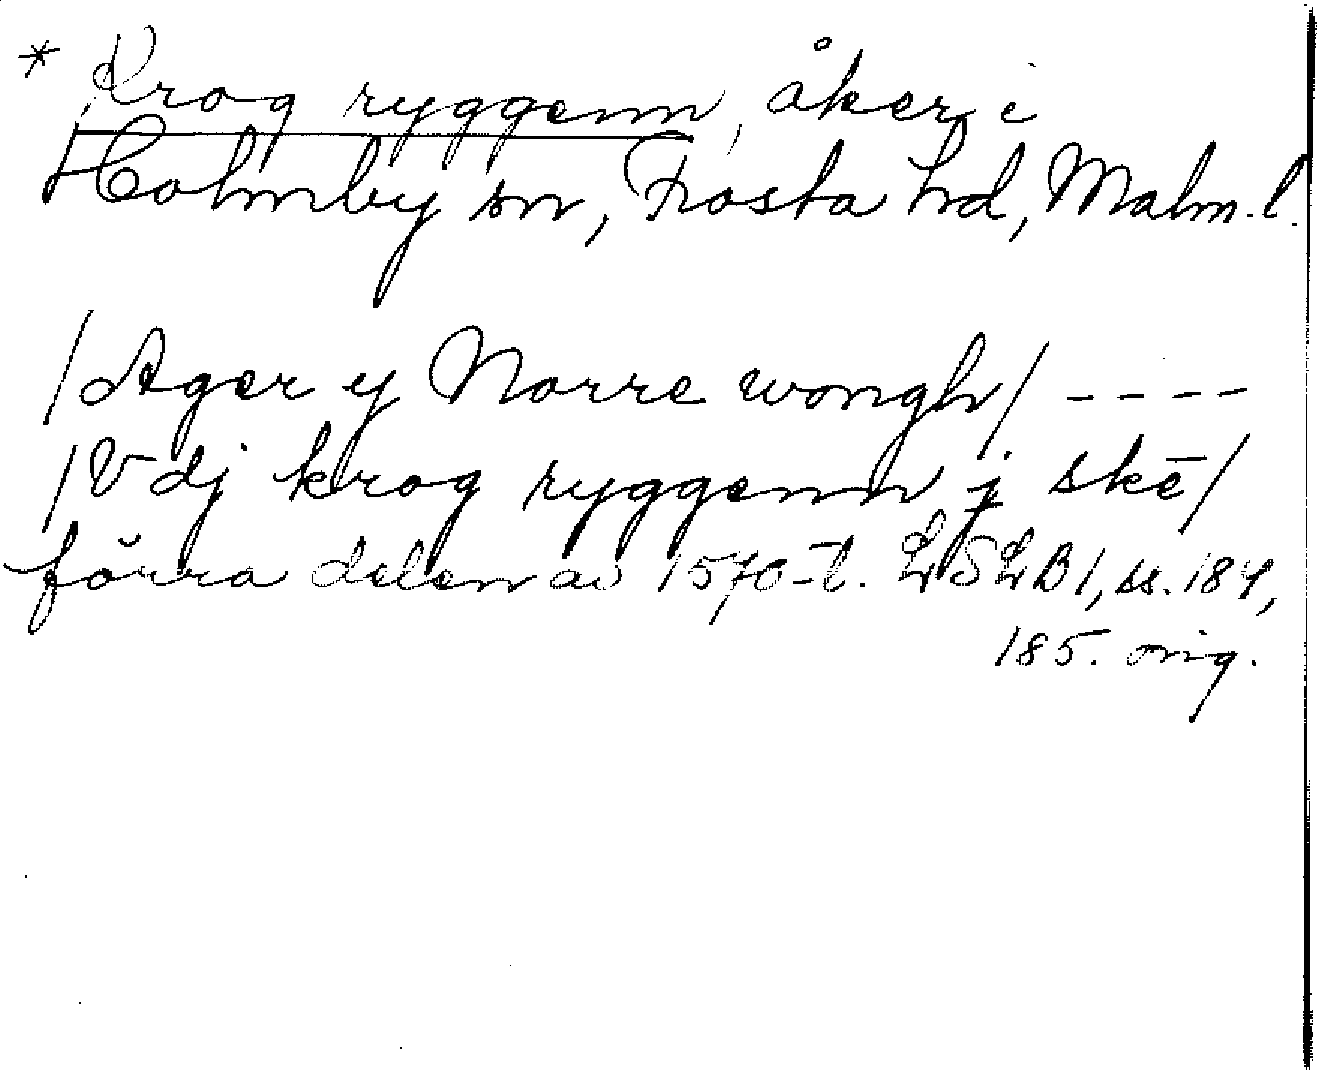 * Krog ryggenn, åker i
Holmby sn, Frosta hd, Malm.l.
/Ager y Norre wongh/ ----
/Vdj krog ryggenn j skē/
förra delen av 1570-t. LSLB1, ss. 184,
185. orig.